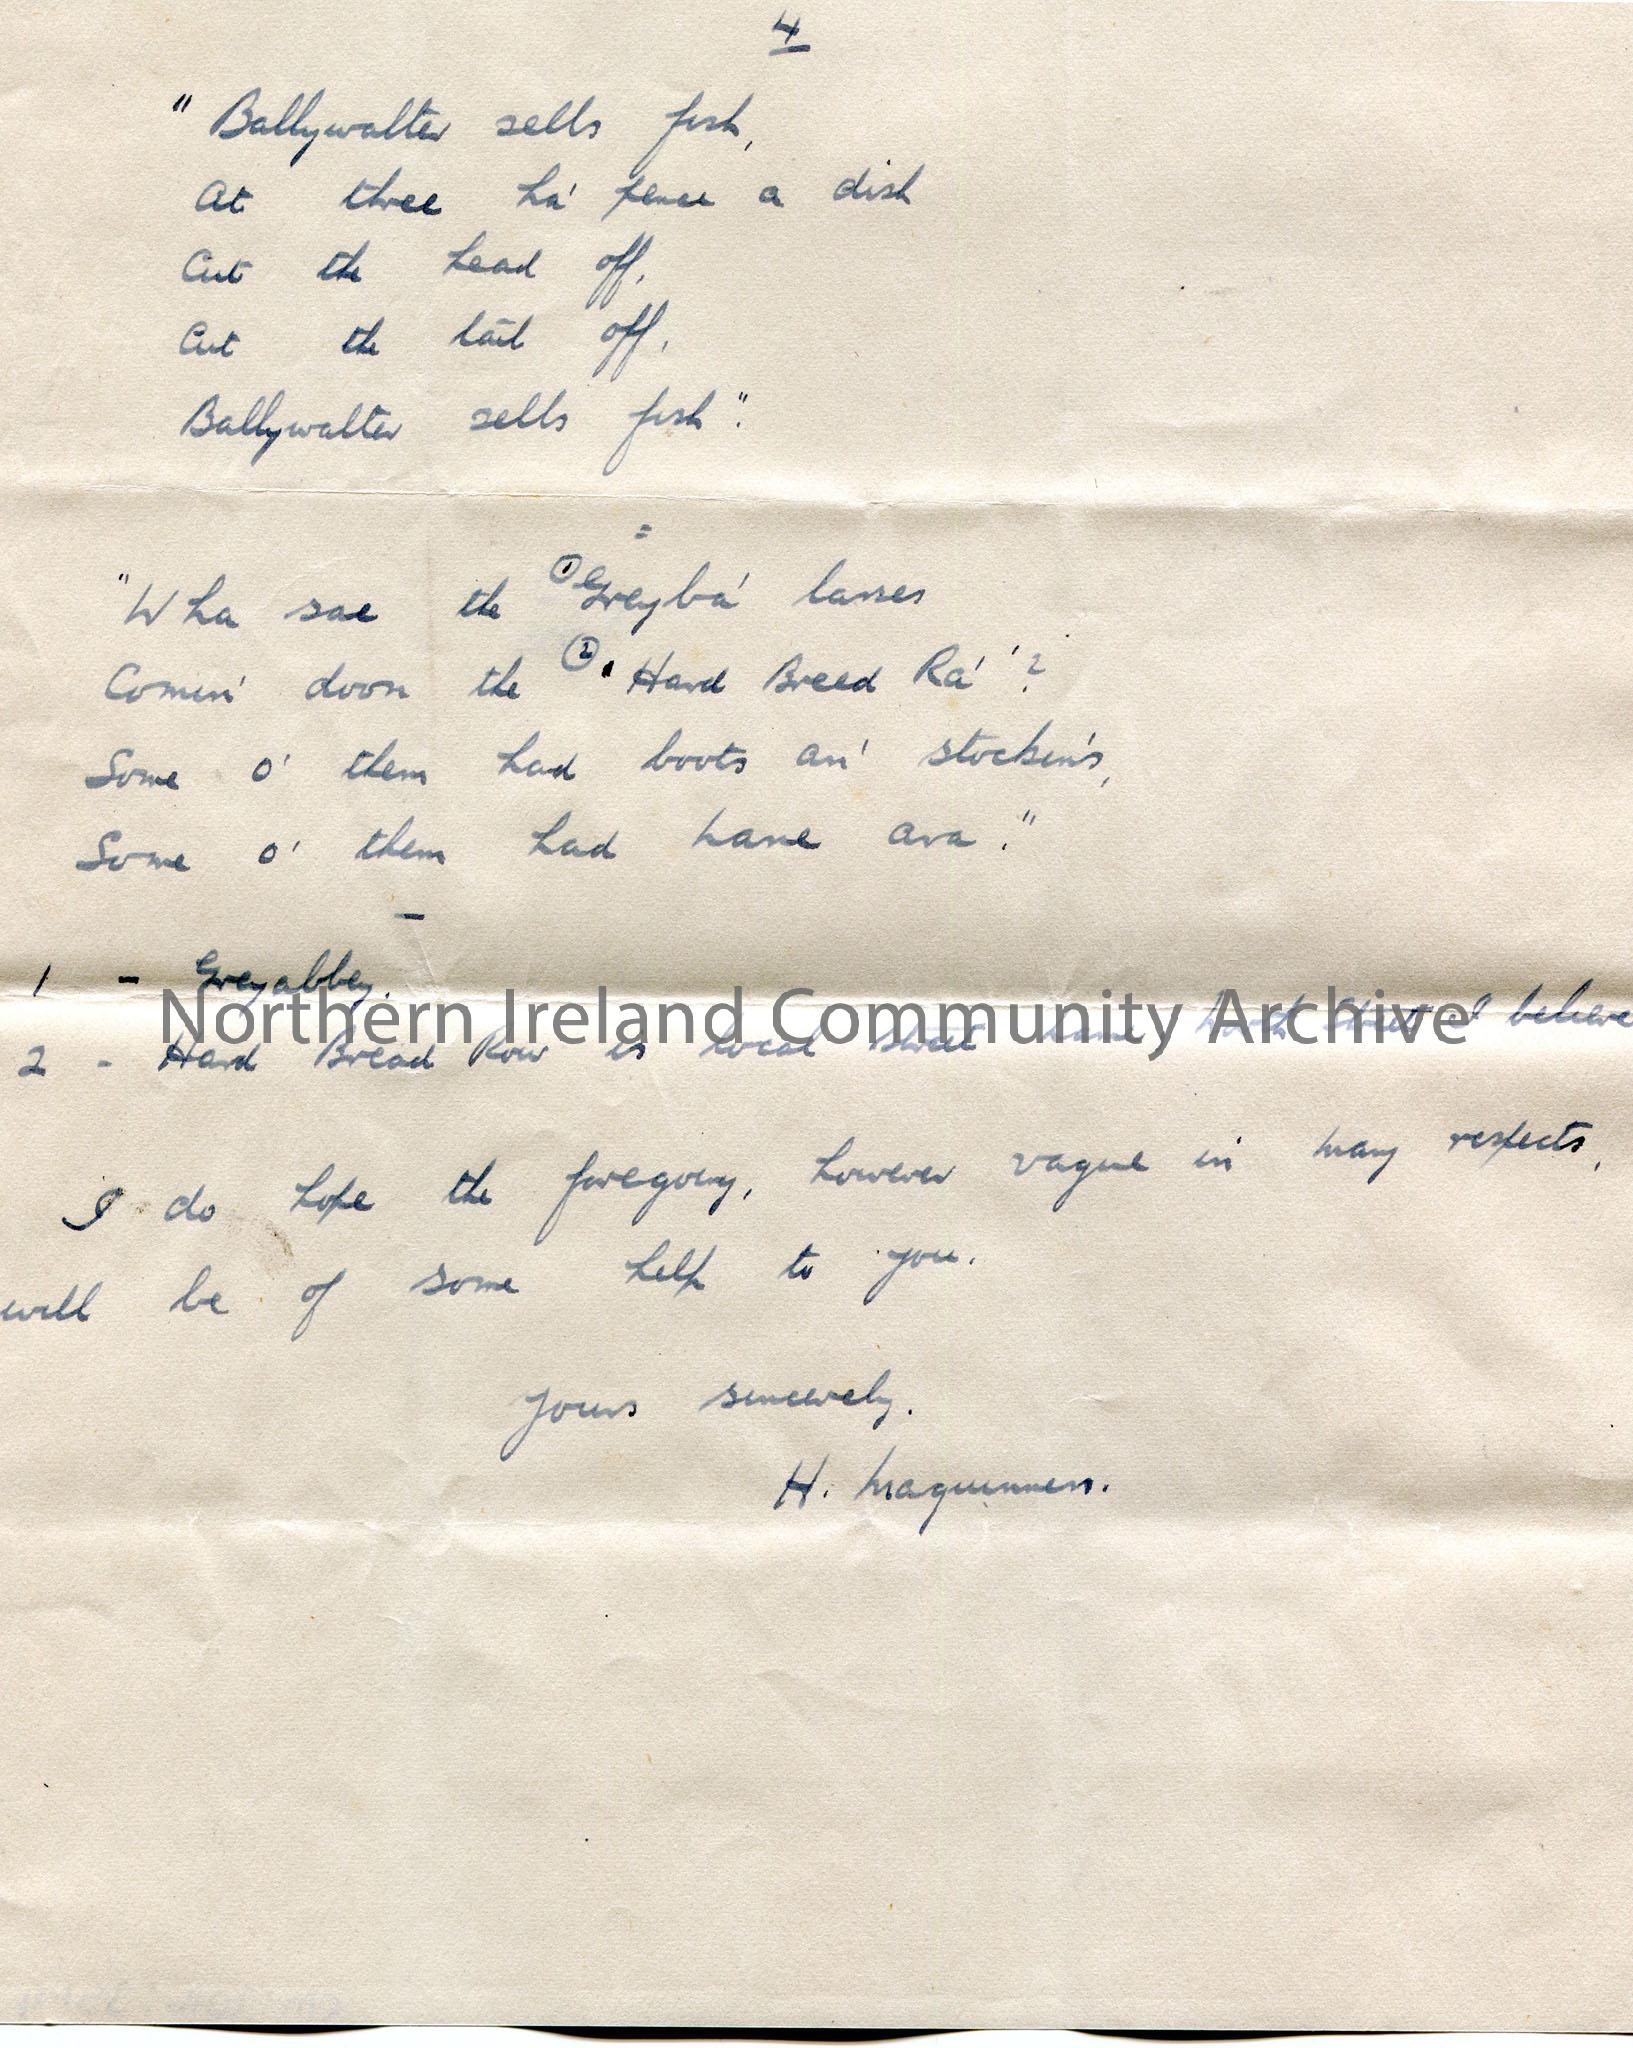 4
"Ballywalter sells fish,
At three ha' pence a dish
Cut the head off,
Cut the tail off,
Ballywalter sells fish".
=
"Wha sae the ① Greyba' lasses
Comin' doon the ② 'Hard Breed Ra''?
Some o' them had boots an' stockin's,
Some o' them had nane ava."
—
1 - Greyabbey.
Northern Ireland Community Archive
2 - Hard Bread Row is local street name North Street I believe
I do hope the foregoing, however vague in many respects,
will be of some help to you.
Yours sincerely.
H. Maguinness.